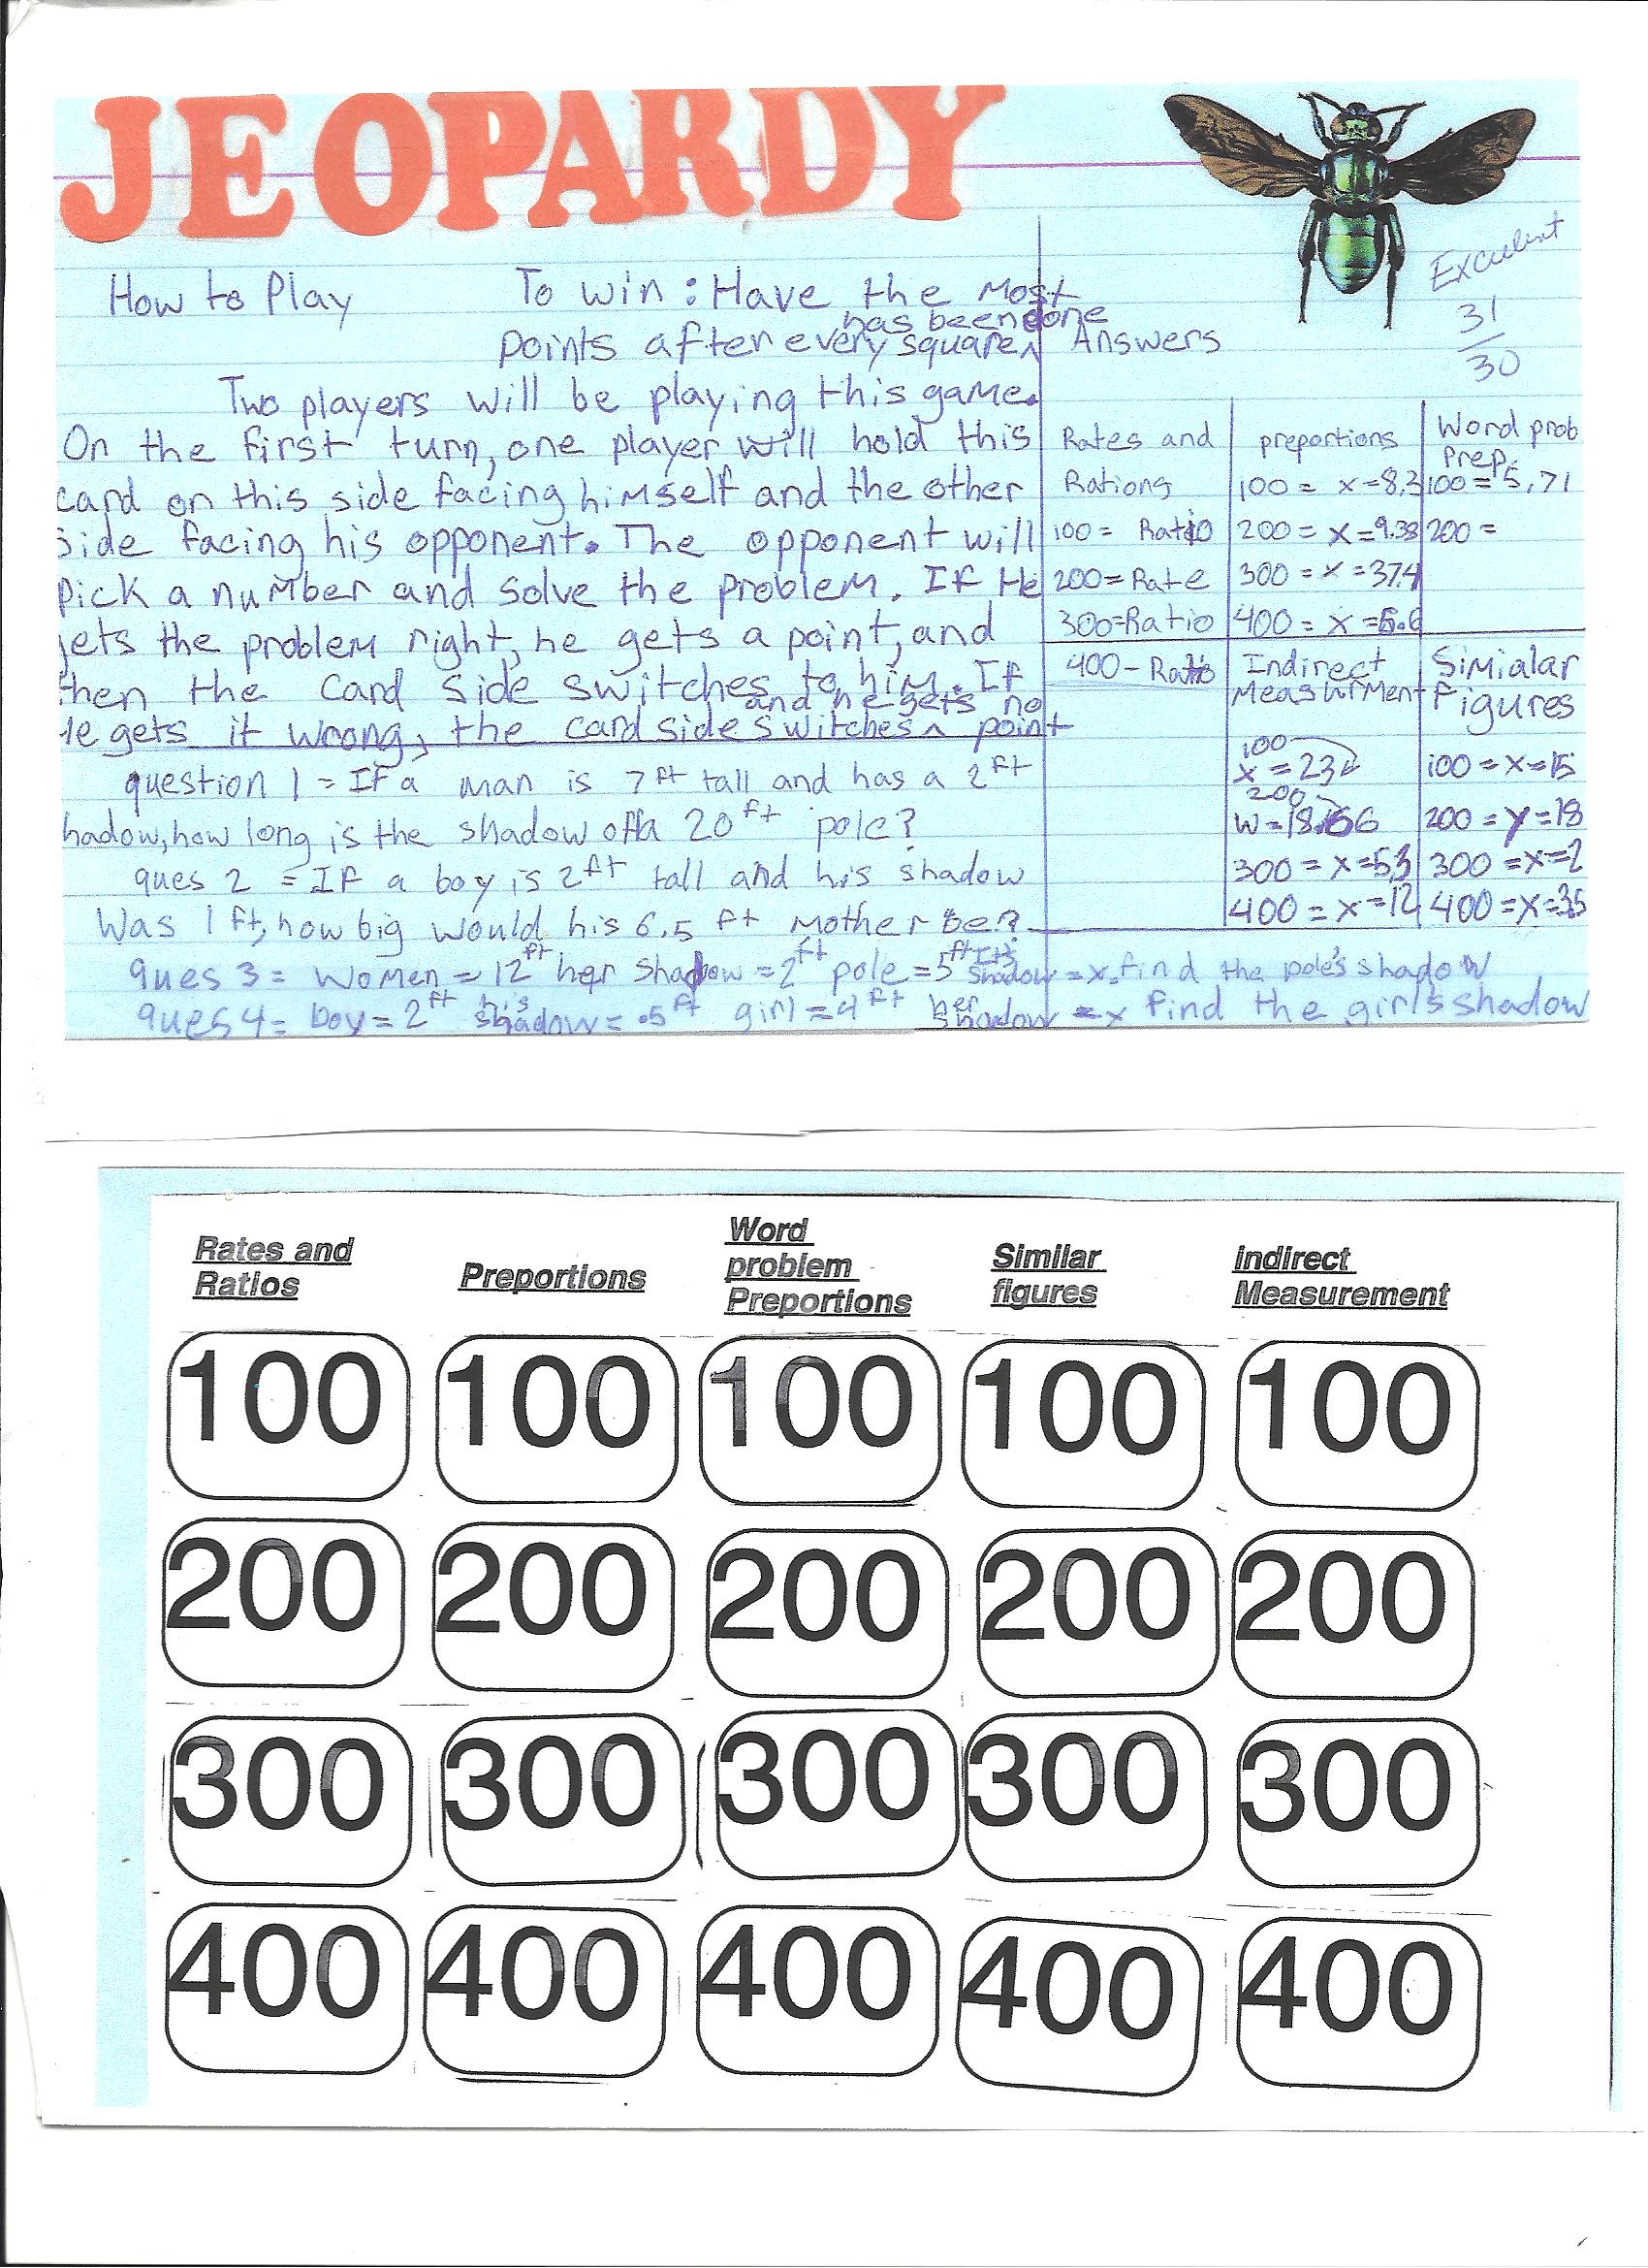 JEOPARDY
How to Play
To win: Have the Most
points after every square has been done
Two players will be playing this game.
On the first turn, one player will hold this
card on this side facing himself and the other
side facing his opponent. The opponent will
pick a number and solve the problem. If He
gets the problem right, he gets a point, and
then the card side switches to him. If
He gets it wrong, the card side switches and he gets no point
question 1 = If a man is 7 ft tall and has a 2 ft
hadow, how long is the shadow of a 20 ft pole?
ques 2 = IF a boy is 2 ft tall and his shadow
Was 1 ft, how big would his 6.5 ft Mother be?
ques 3 = Women = 12 ft her shadow = 2 ft pole = 5 ft Its shadow = x. find the pole's shadow
ques 4 = boy = 2 ft his shadow = .5 ft girl = 4 ft her shadow = x find the girl's shadow
Excellent
31
30
Answers
Rates and
Rations
100 = Ratio
200 = Rate
300 = Ratio
400 - Ratio
preportions
100 = x = 8.3
200 = x = 9.38
300 = x = 37.4
400 = x =
Word prob
Prep.
100 = 5.71
200 =
Indirect
Measurment
100
x = 23
200
W = 18.66
300 = x = 53
400 = x = 12
Simialar
Figures
100 = x = 15
200 = y = 18
300 = x = 2
400 = x = 35
Rates and
Ratios
Preportions
Word
problem
Preportions
Similar
figures
indirect
Measurement
100 100 100 100 100
200 200 200 200 200
300 300 300 300 300
400 400 400 400 400